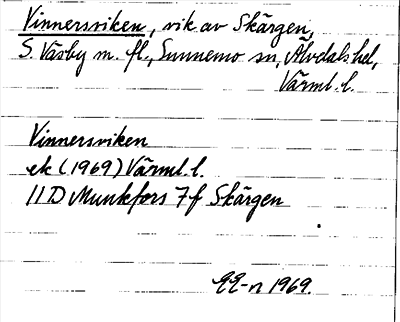 Vinnersviken, vik av Skärgen,
S. Väsby m. fl., Sunnemo sn, Älvdals hd,
Värml. l.
Vinnersviken
ek (1969) Värml. l.
11D Munkfors 7f Skärgen
1969.